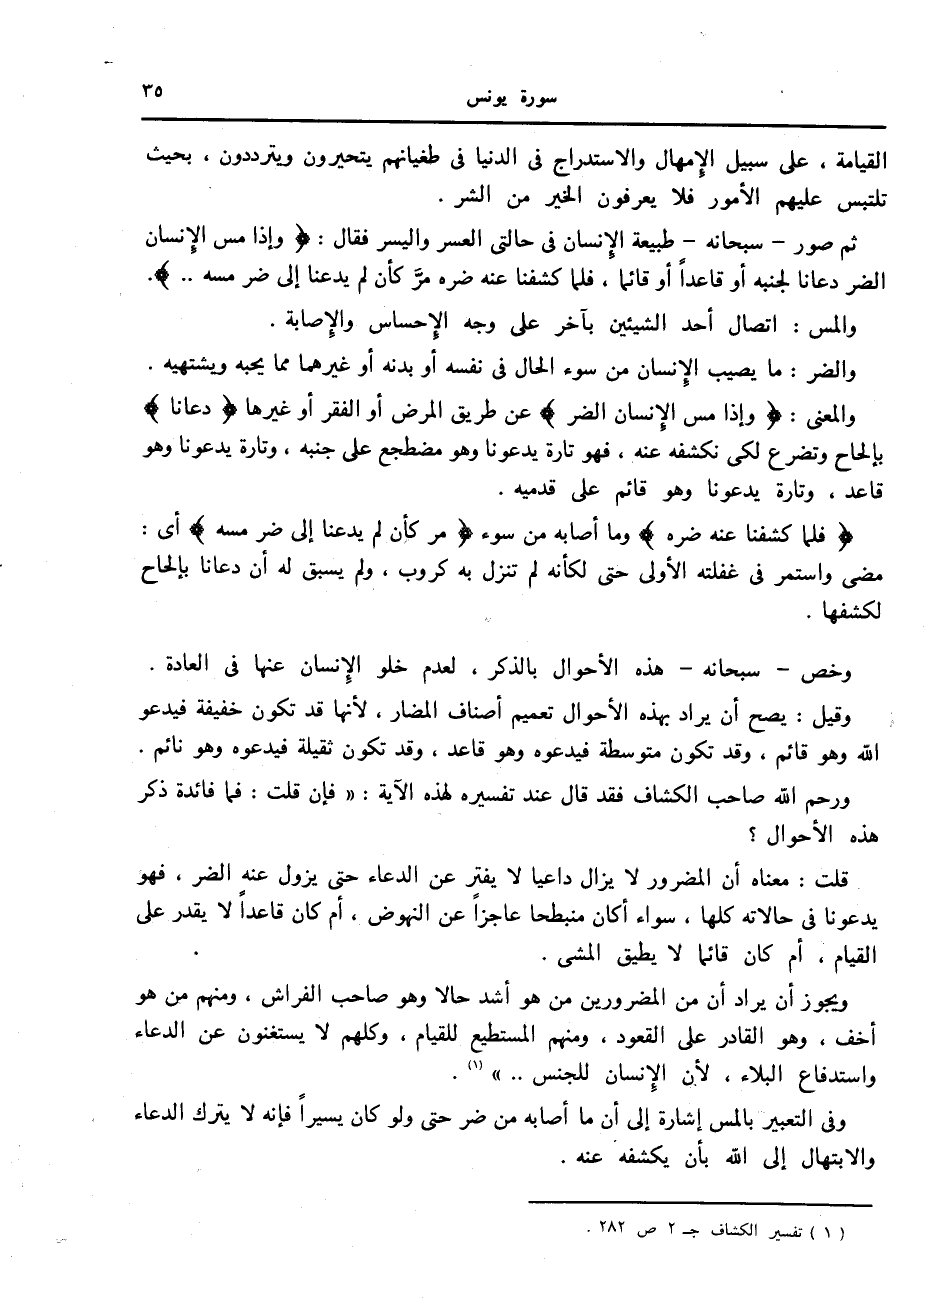 سورة يونس ٣٥
القيامة ، على سبيل الإمهال والاستدراج فى الدنيا فى طغيانهم يتحيرون ويترددون ، بحيث
تلتبس عليهم الأمور فلا يعرفون الخير من الشر .
ثم صور - سبحانه - طبيعة الإنسان فى حالتى العسر واليسر فقال : ﴿ وإذا مس الإنسان
الضر دعانا لجنبه أو قاعداً أو قائما ، فلما كشفنا عنه ضره مرَّ كأن لم يدعنا إلى ضر مسه .. ﴾.
والمس : اتصال أحد الشيئين بآخر على وجه الإحساس والإصابة .
والضر : ما يصيب الإنسان من سوء الحال فى نفسه أو بدنه أو غيرهما مما يحبه ويشتهيه .
والمعنى : ﴿ وإذا مس الإنسان الضر ﴾ عن طريق المرض أو الفقر أو غيرها ﴿ دعانا ﴾
بإلحاح وتضرع لكى نكشفه عنه ، فهو تارة يدعونا وهو مضطجع على جنبه ، وتارة يدعونا وهو
قاعد ، وتارة يدعونا وهو قائم على قدميه .
﴿ فلما كشفنا عنه ضره ﴾ وما أصابه من سوء ﴿ مر كأن لم يدعنا إلى ضر مسه ﴾ أى :
مضى واستمر فى غفلته الأولى حتى لكأنه لم تنزل به كروب ، ولم يسبق له أن دعانا بإلحاح
لكشفها .
وخص - سبحانه - هذه الأحوال بالذكر ، لعدم خلو الإنسان عنها فى العادة .
وقيل : يصح أن يراد بهذه الأحوال تعميم أصناف المضار ، لأنها قد تكون خفيفة فيدعو
الله وهو قائم ، وقد تكون متوسطة فيدعوه وهو قاعد ، وقد تكون ثقيلة فيدعوه وهو نائم .
ورحم الله صاحب الكشاف فقد قال عند تفسيره لهذه الآية : « فإن قلت : فما فائدة ذكر
هذه الأحوال ؟
قلت : معناه أن المضرور لا يزال داعيا لا يفتر عن الدعاء حتى يزول عنه الضر ، فهو
يدعونا فى حالاته كلها ، سواء أكان منبطحا عاجزاً عن النهوض ، أم كان قاعداً لا يقدر على
القيام ، أم كان قائما لا يطيق المشى .
ويجوز أن يراد أن من المضرورين من هو أشد حالا وهو صاحب الفراش ، ومنهم من هو
أخف ، وهو القادر على القعود ، ومنهم المستطيع للقيام ، وكلهم لا يستغنون عن الدعاء
واستدفاع البلاء ، لأن الإنسان للجنس .. » (١) .
وفى التعبير بالمس إشارة إلى أن ما أصابه من ضر حتى ولو كان يسيراً فإنه لا يترك الدعاء
والابتهال إلى الله بأن يكشفه عنه .
( ١ ) تفسير الكشاف جـ ٢ ص ٢٨٢ .